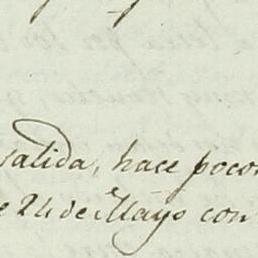 salida, hace pocos
e 24 de Mayo con